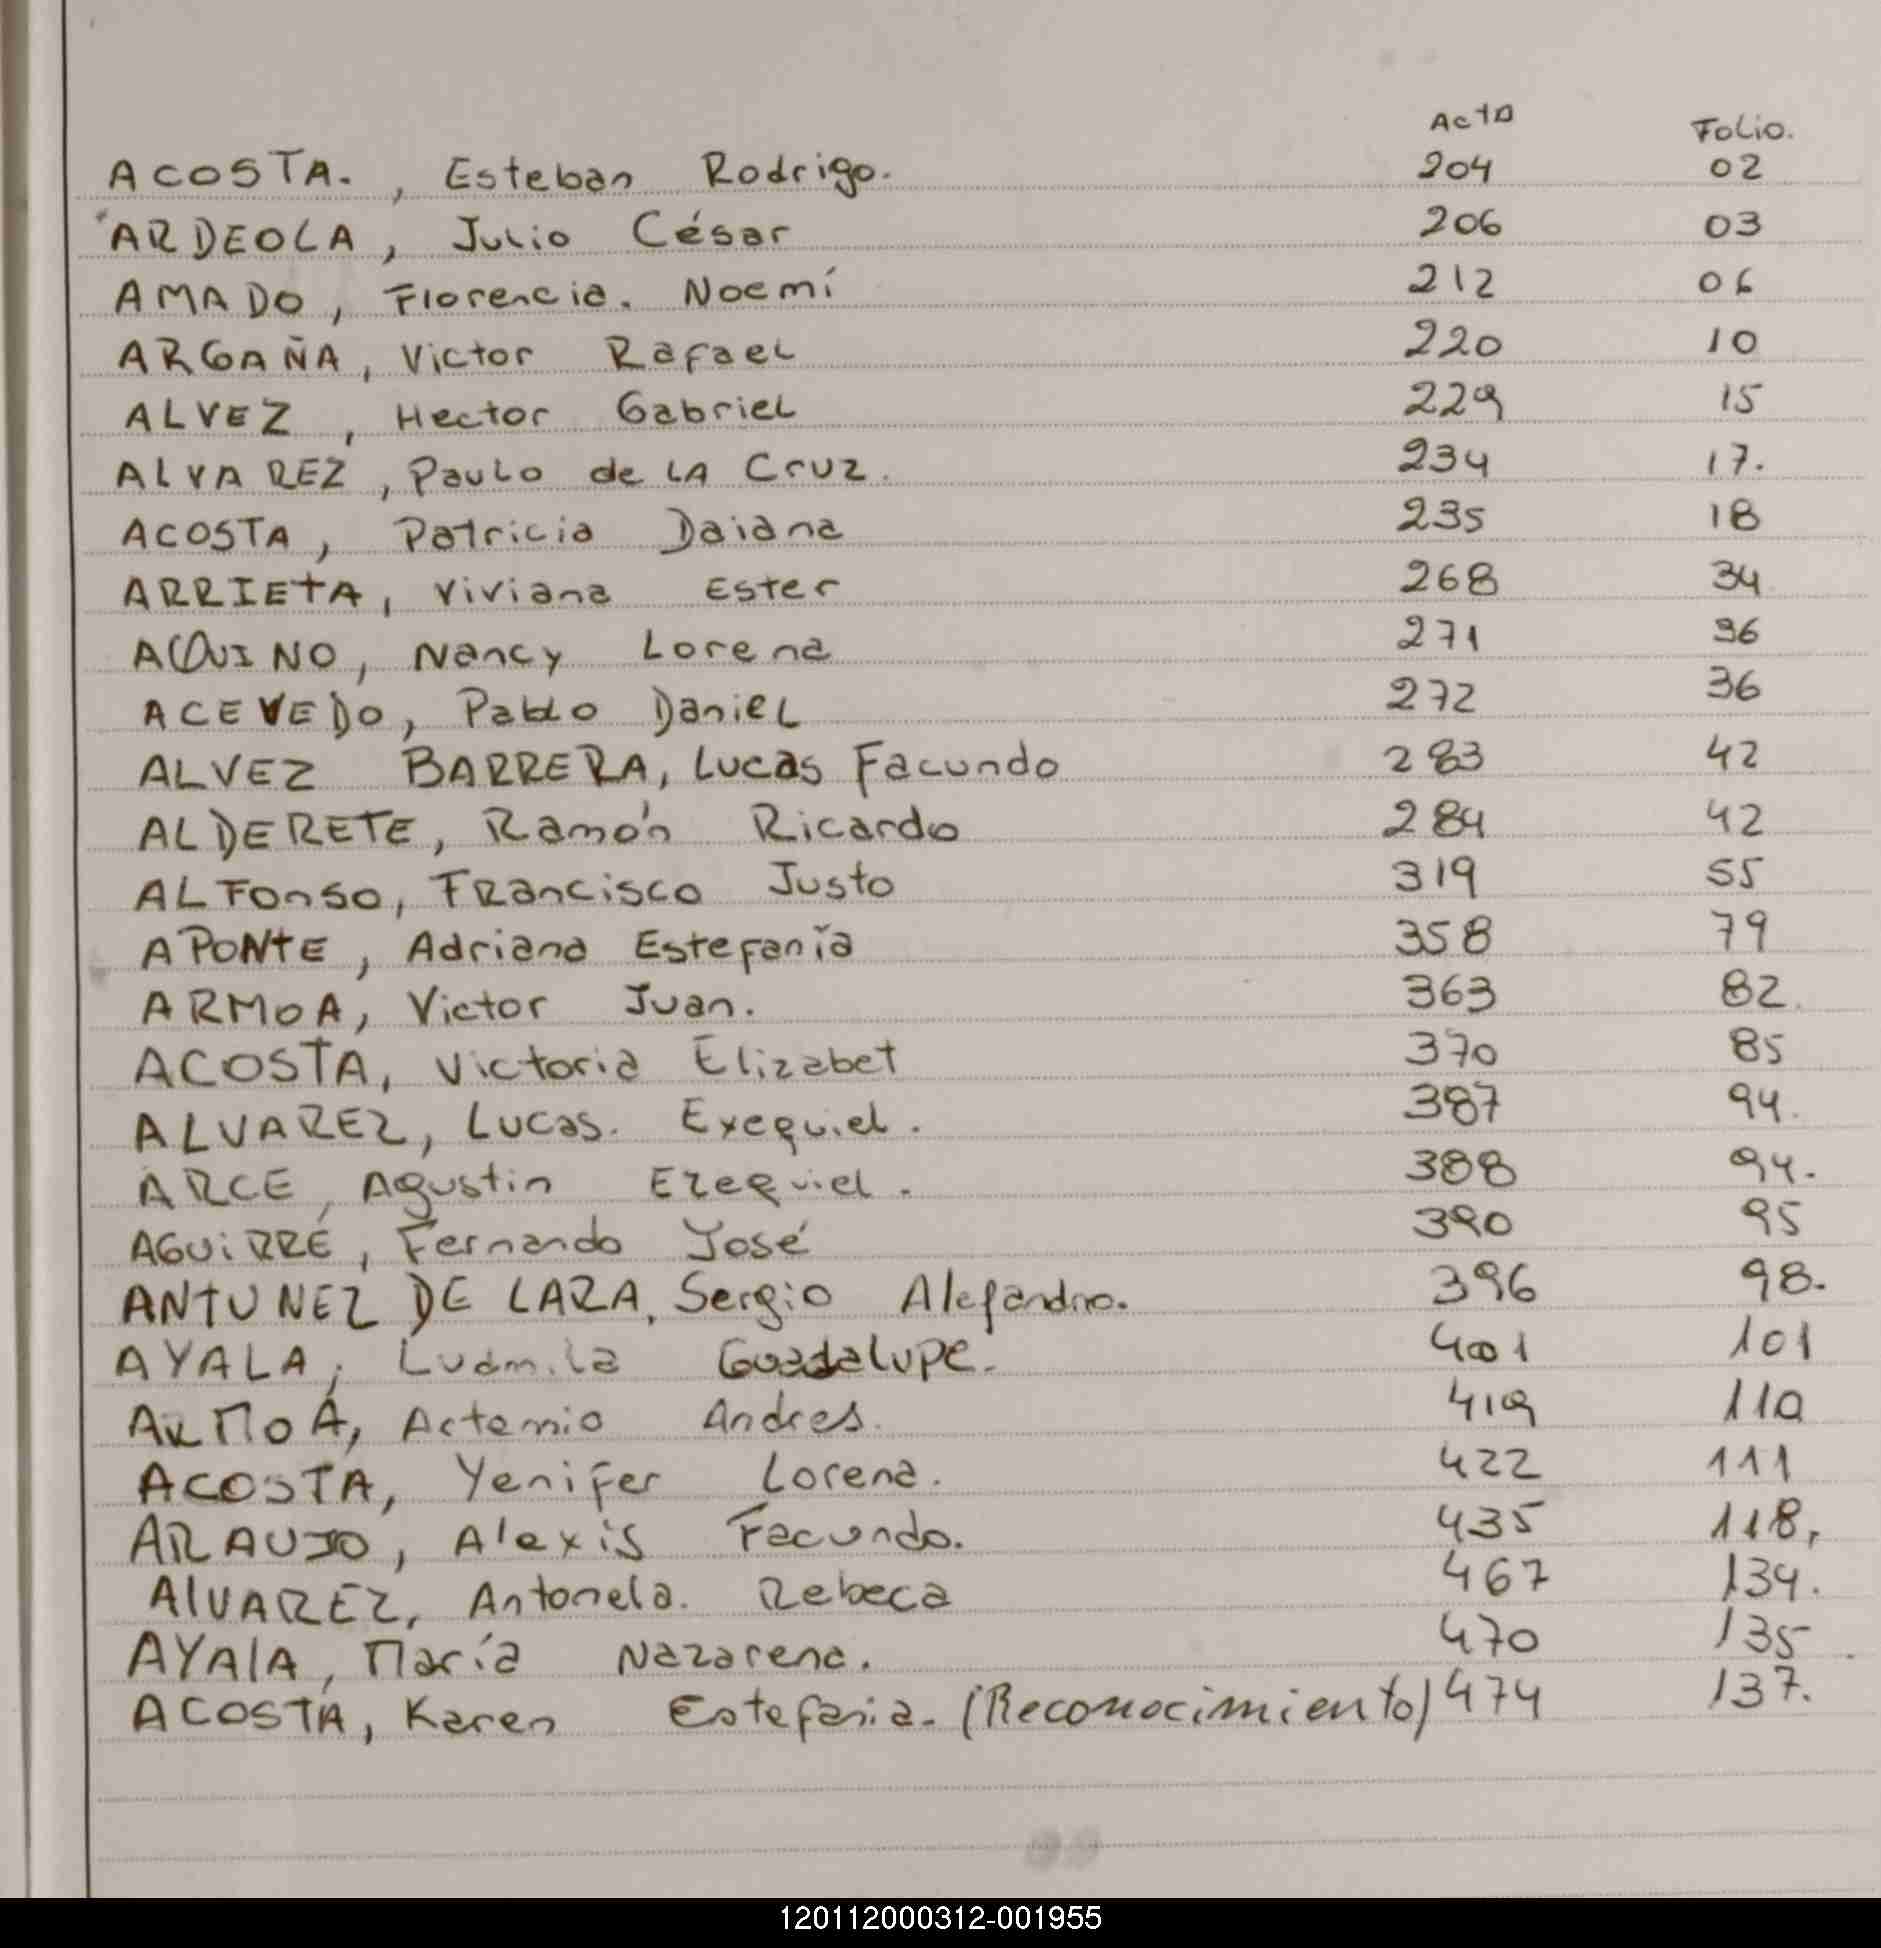 Acta Folio.
ACOSTA. , Esteban Rodrigo. 204 02
ARDEOLA, Julio César 206 03
AMADO, Florencia. Noemí 212 06
ARGAÑA, Victor Rafael 220 10
ALVEZ , Hector Gabriel 229 15
ALVAREZ, Paulo de LA Cruz. 234 17.
ACOSTA, Patricia Daiana 235 18
ARRIETA, Viviana Ester 268 34
AQUINO, Nancy Lorena 271 36
ACEVEDO, Pablo Daniel 272 36
ALVEZ BARRERA, Lucas Facundo 283 42
ALDERETE, Ramón Ricardo 284 42
ALFonso, FRancisco Justo 319 55
APONTE, Adriana Estefanía 358 79
ARMOA, Victor Juan. 363 82.
ACOSTA, Victoria Elizabet 370 85
ALVAREZ, Lucas. Exequiel. 387 94.
ARCE, Agustin Ezequiel. 388 94.
AGUiRRE, Fernando José 390 95
ANTUNEZ DE LARA, Sergio Alejandro. 396 98.
AYALA, Ludmila Guadalupe. 401 101
ARMOA, Artemio Andres. 419 110
ACOSTA, Yenifer Lorena. 422 111
ARAUJO, Alexis Facundo. 435 118,
AlVAREZ, Antonela. Rebeca 467 134.
AYAlA, María Nazarena. 470 135
ACOSTA, Karen Estefania. (Reconocimiento) 474 137.
120112000312-001955